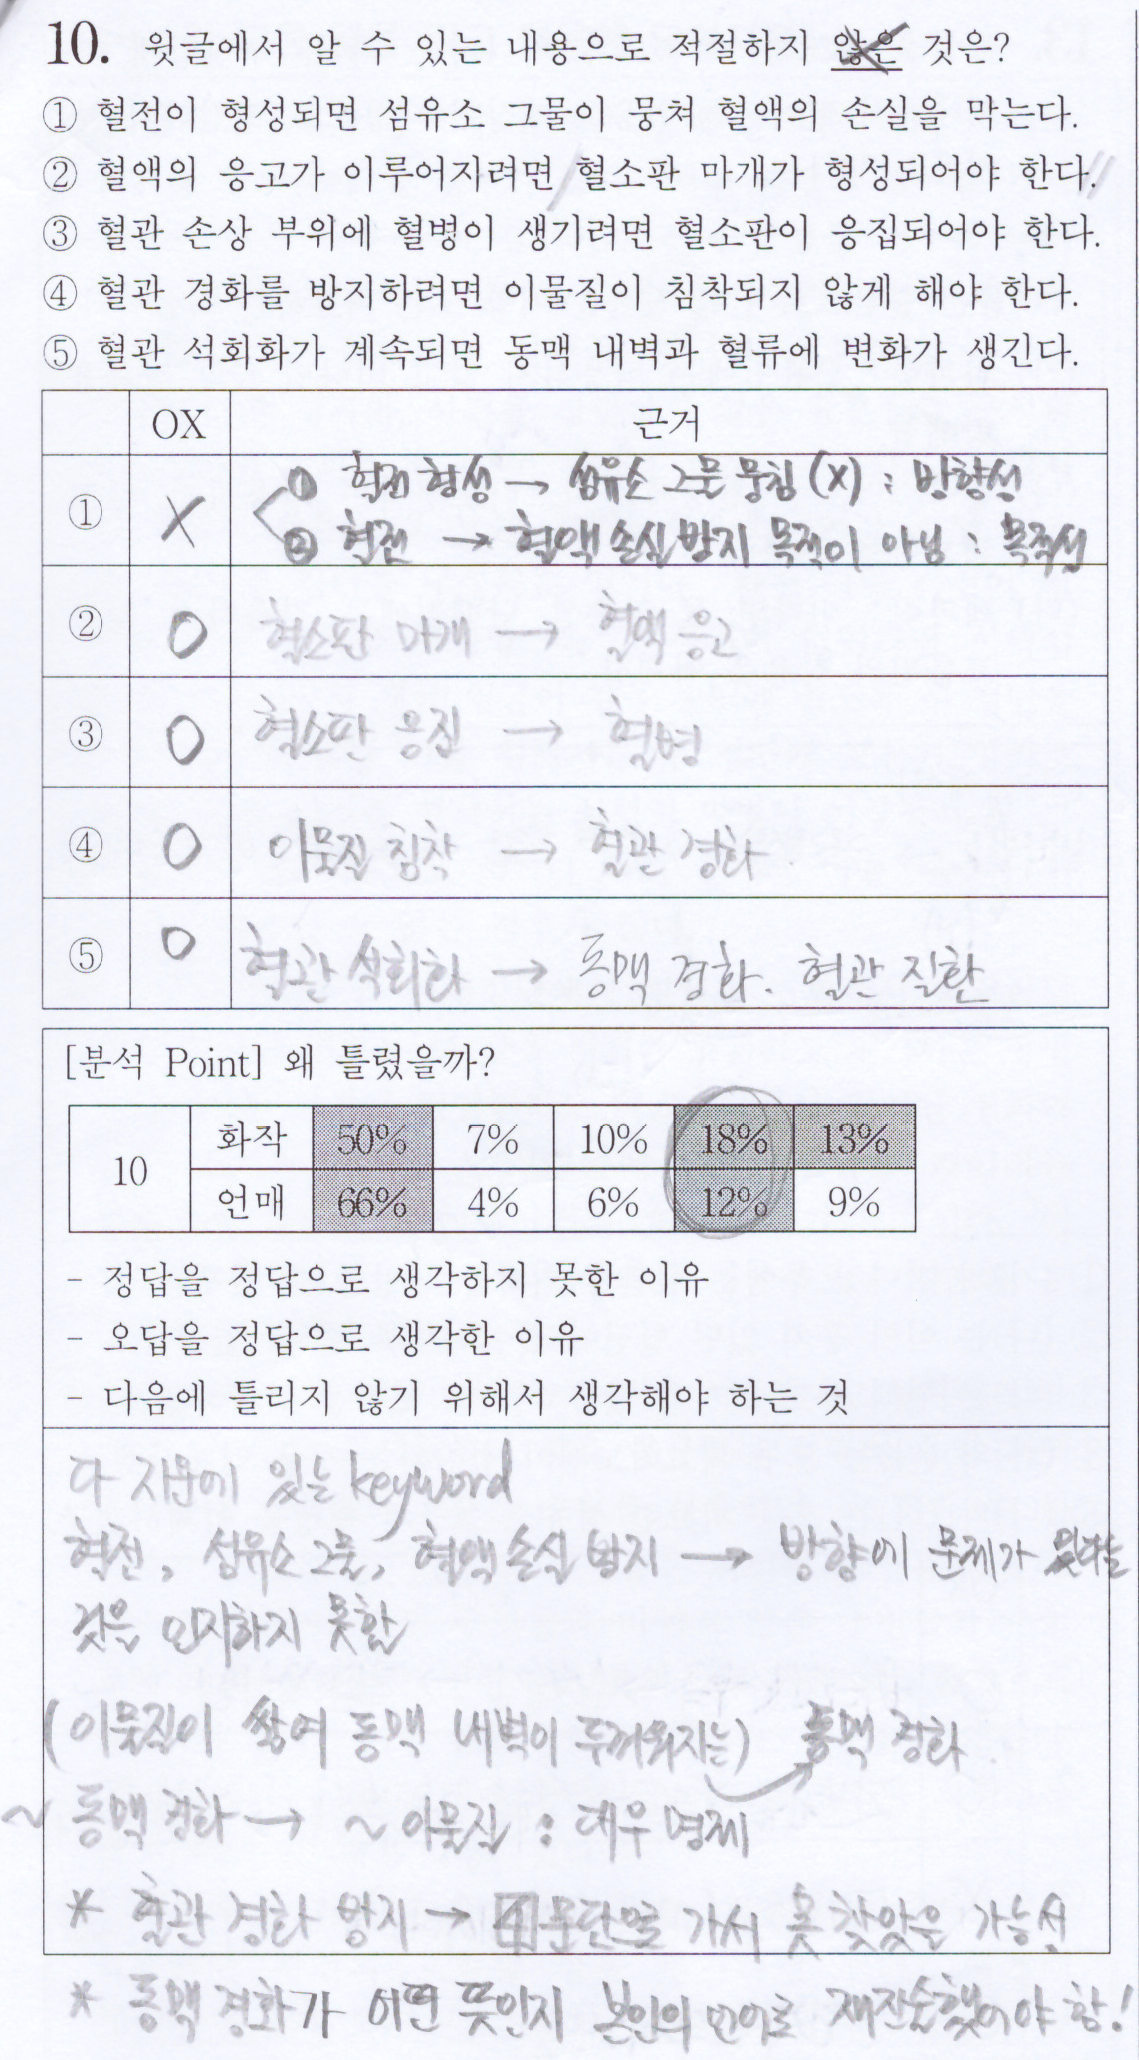 10. 윗글에서 알 수 있는 내용으로 적절하지 않은 것은?
① 혈전이 형성되면 섬유소 그물이 뭉쳐 혈액의 손실을 막는다.
② 혈액의 응고가 이루어지려면 혈소판 마개가 형성되어야 한다.
③ 혈관 손상 부위에 혈병이 생기려면 혈소판이 응집되어야 한다.
④ 혈관 경화를 방지하려면 이물질이 침착되지 않게 해야 한다.
⑤ 혈관 석회화가 계속되면 동맥 내벽과 혈류에 변화가 생긴다.
OX 근거
① X ① 혈전 형성 → 섬유소 그물 뭉침 (X) : 방향성
② 혈전 → 혈액 손실 방지 목적이 아님 : 목적성
② O 혈소판 마개 → 혈액 응고
③ O 혈소판 응집 → 혈병
④ O 이물질 침착 → 혈관 경화
⑤ O 혈관 석회화 → 동맥 경화. 혈관 질환
[분석 Point] 왜 틀렸을까?
10 화작 50% 7% 10% 18% 13%
언매 66% 4% 6% 12% 9%
- 정답을 정답으로 생각하지 못한 이유
- 오답을 정답으로 생각한 이유
- 다음에 틀리지 않기 위해서 생각해야 하는 것
다 지문에 있는 keyword
혈전, 섬유소 그물, 혈액 손실 방지 → 방향에 문제가 있다는
것을 인지하지 못함
(이물질이 쌓여 동맥 내벽이 두꺼워지는) 동맥 경화
~ 동맥 경화 → ~ 이물질 : 대우 명제
* 혈관 경화 방지 → 4문단으로 가서 못 찾았을 가능성
* 동맥 경화가 어떤 뜻인지 본인의 언어로 재진술했어야 함!